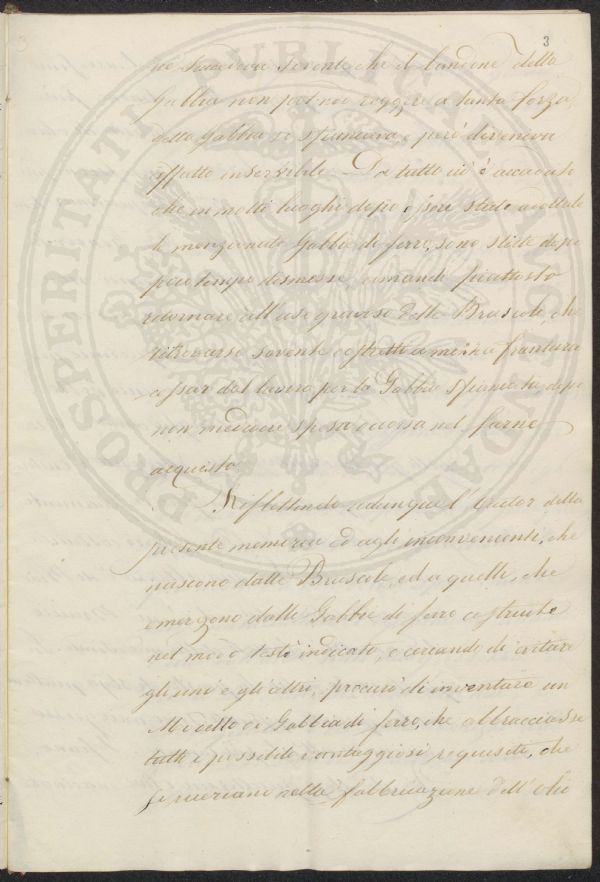 3
sovente che il bandone della
Gabbia non potendo reggere a tanta forza,
della Gabbia si sfiancava, e però diveniva
affatto inservibile. Da tutto ciò è accaduto
che in molti luoghi dopo essere state adottate
le menzionate Gabbie di ferro, sono state dopo
poco tempo dismesse, amando piuttosto
ritornare all'uso gravoso delle Bruscole, che
ritrovarsi sovente costretti a mezza frantura
cessar dal lavoro per la Gabbia sfiancata, dopo
non mediocre spesa occorsa nel farne
acquisto.
Riflettendo adunque l'Autor della
presente memoria ed agli inconvenienti, che
nascono dalle Bruscole, ed a quelli, che
emergono dalle Gabbie di ferro costruite
nel modo testè indicato, e cercando di evitare
gli uni e gli altri, procurò di inventare un
Modello di Gabbia di ferro, che abbracciasse
tutti i possibili vantaggiosi requisiti, che
si ricercano nella fabbricazione dell'olio
PROSPERITATI PUBLICAE AUGENDAE